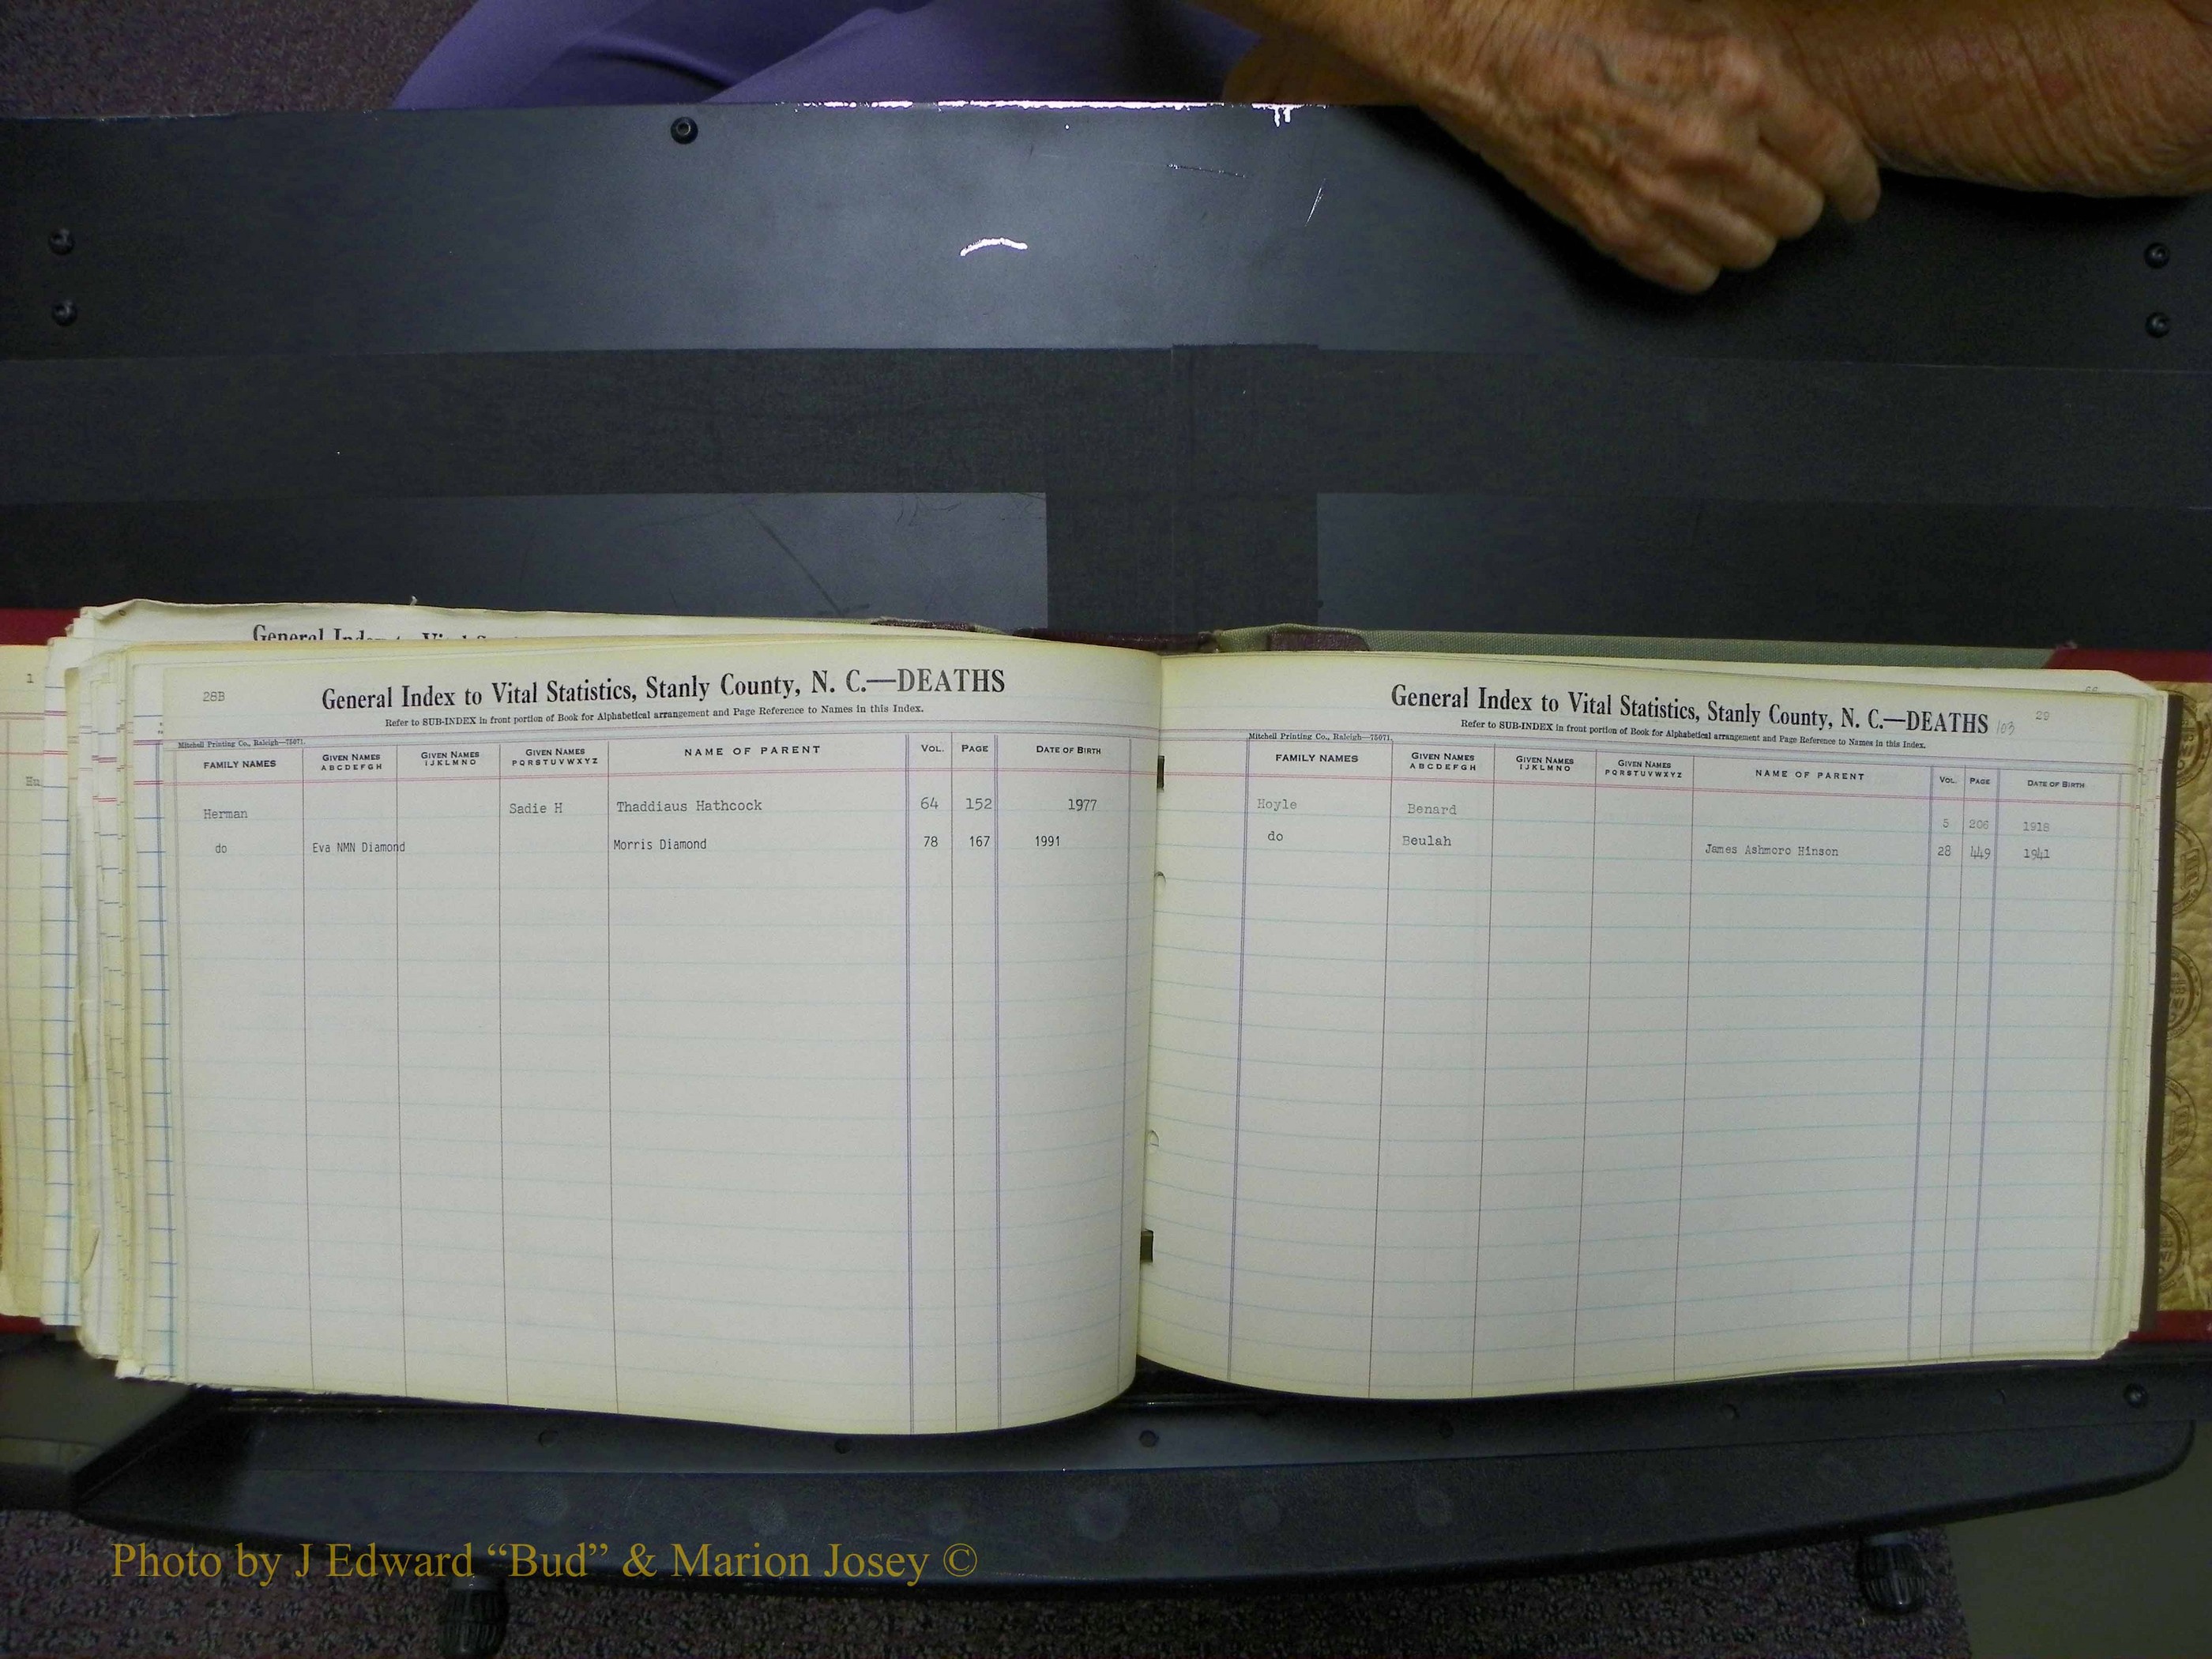 General Index to Vital S
1
Hu
28B
General Index to Vital Statistics, Stanly County, N. C.—DEATHS
Refer to SUB-INDEX in front portion of Book for Alphabetical arrangement and Page Reference to Names in this Index.
Mitchell Printing Co., Raleigh—75071.
FAMILY NAMES GIVEN NAMES ABCDEFGH GIVEN NAMES IJKLMNO GIVEN NAMES PQRSTUVWXYZ NAME OF PARENT VOL. PAGE DATE OF BIRTH
Herman Sadie H Thaddiaus Hathcock 64 152 1977
do Eva NMN Diamond Morris Diamond 78 167 1991
General Index to Vital Statistics, Stanly County, N. C.—DEATHS 103 29
Refer to SUB-INDEX in front portion of Book for Alphabetical arrangement and Page Reference to Names in this Index.
Mitchell Printing Co., Raleigh—75071.
FAMILY NAMES GIVEN NAMES ABCDEFGH GIVEN NAMES IJKLMNO GIVEN NAMES PQRSTUVWXYZ NAME OF PARENT VOL. PAGE DATE OF BIRTH
Hoyle Benard 5 206 1918
do Beulah James Ashmoro Hinson 28 449 1941
Photo by J Edward “Bud” & Marion Josey ©